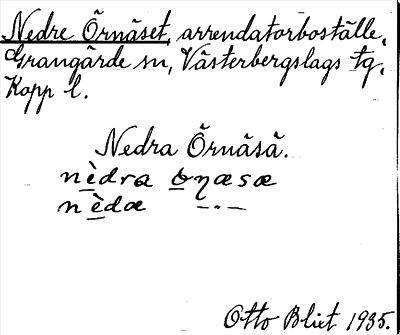 Nedre Örnäset, arrendatorboställe,
Grangärde sn, Västerbergslags tg,
Kopp l.
Nedra Örnäsä.
nèdra ɵɳæsæ
nèdæ –.–
Otto Blixt 1935.